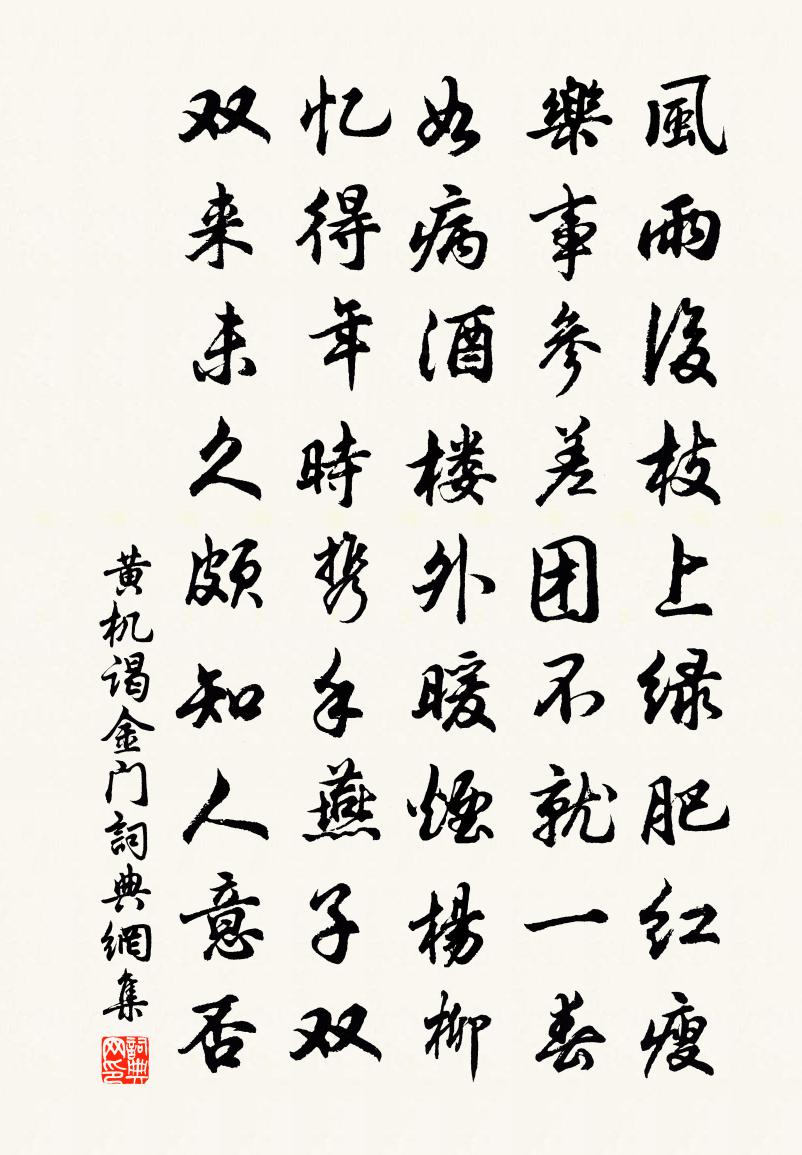 風雨後枝上绿肥红瘦
樂事參差团不就一春
如病酒楼外暖煙楊柳
忆得年時携手燕子双
双来未久颇知人意否
黄机谒金门詞典網集
詞典网印